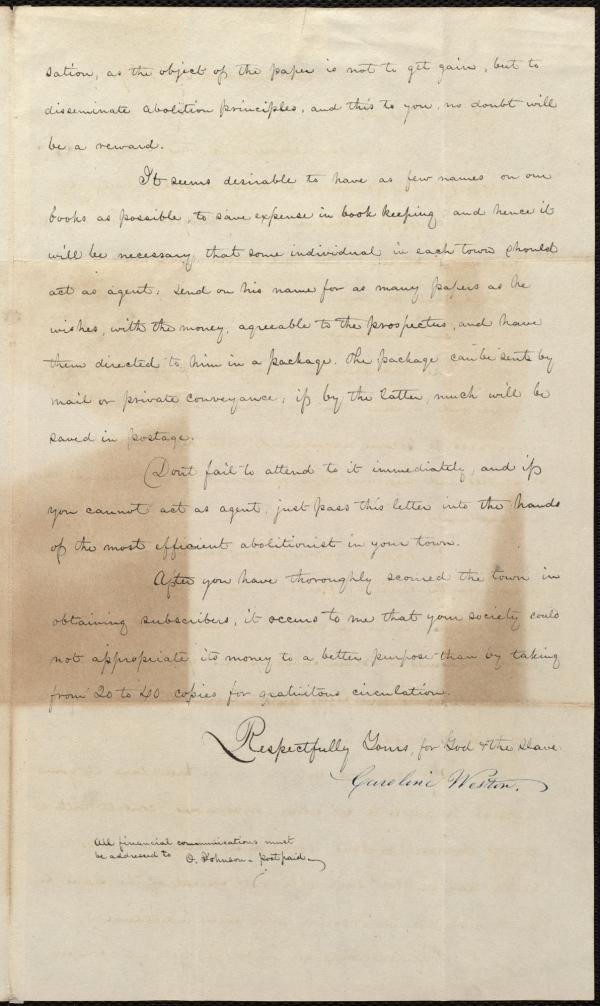 sation, as the object of the paper is not to get gain, but to
disseminate abolition principles, and this to you, no doubt will
be a reward.
It seems desirable to have as few names on our
books as possible, to save expense in book keeping and hence it
will be necessary that some individual in each town should
act as agent; send on his name for as many papers as he
wishes, with the money, agreeable to the prospectus, and have
them directed to him in a package. The package can be sent by
mail or private conveyance; if by the latter, much will be
saved in postage.
Dont fail to attend to it immediately, and if
you cannot act as agent, just pass this letter into the hands
of the most efficient abolitionist in your town.
After you have thoroughly scoured the town in
obtaining subscribers, it occurs to me that your society could
not appropriate its money to a better purpose than by taking
from 20 to 40 copies for gratuitous circulation.
Respectfully Yours, for God & the slave.
Caroline Weston.
All financial communications must
be addressed to O. Johnson - post paid